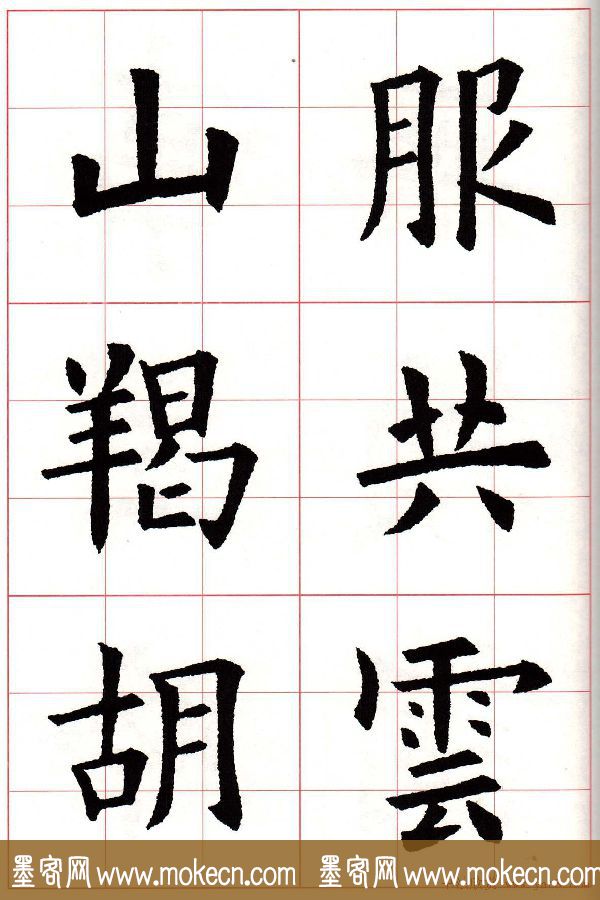 服共雲
山羯胡
墨客网 www.mokecn.com 墨客网 www.mokecn.com